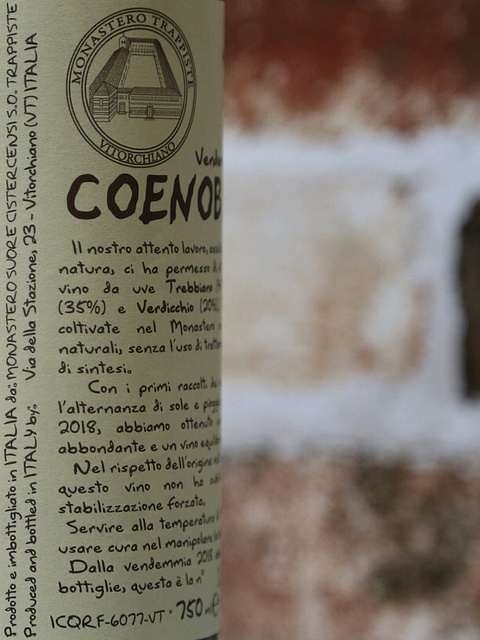 Prodotto e imbottigliato in ITALIA da: MONASTERO SUORE CISTERCENSI S.O. TRAPPISTE
Produced and bottled in ITALY by: Via della Stazione, 23 - Vitorchiano (VT) ITALIA
MONASTERO TRAPPISTE
VITORCHIANO
COENOB
Il nostro attento lavoro,
natura, ci ha permesso
vino da uve Trebbiano
(35%) e Verdicchio (20%)
coltivate nel Monastero
naturali, senza l'uso di
di sintesi.
Con i primi raccolti,
l'alternanza di sole e
2018, abbiamo ottenuto
abbondante e un vino
Nel rispetto dell'origine
questo vino non ha
stabilizzazione forzata.
Servire alla temperatura
usare cura nel
Dalla vendemmia 2018
bottiglie, questa è la n°
ICQRF-6077-VT · 750